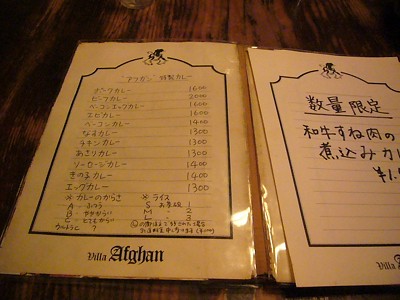 "アフガン" 特製カレー
ポークカレー 1600
ビーフカレー 2000
ベーコンエッグカレー 1600
エビカレー 1600
ベーコンカレー 1400
なすカレー 1300
チキンカレー 1300
あさりカレー 1300
ソーセージカレー 1400
きのこカレー 1400
エッグカレー 1300
※カレーのからさ
A = ふつう
B =
C =
ウルトラC ?
※ライス
S お茶碗 1
M 2
L 3
Villa Afghan
数量限定
和牛すね肉の
煮込みカ
¥1.
Villa Afgha